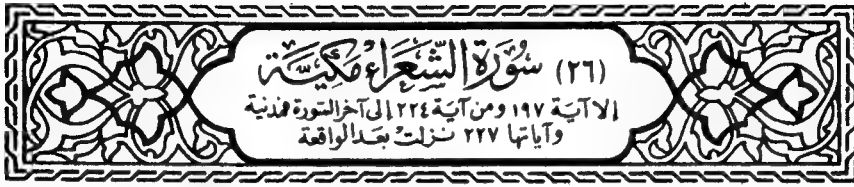 (٢٦) سُورَةُ الشُّعَرَاءِ مَكِيَّة
إلا آية ١٩٧ ومن آية ٢٢٤ إلى آخر السورة فمدنية
وآياتها ٢٢٧ نزلت بعد الواقعة